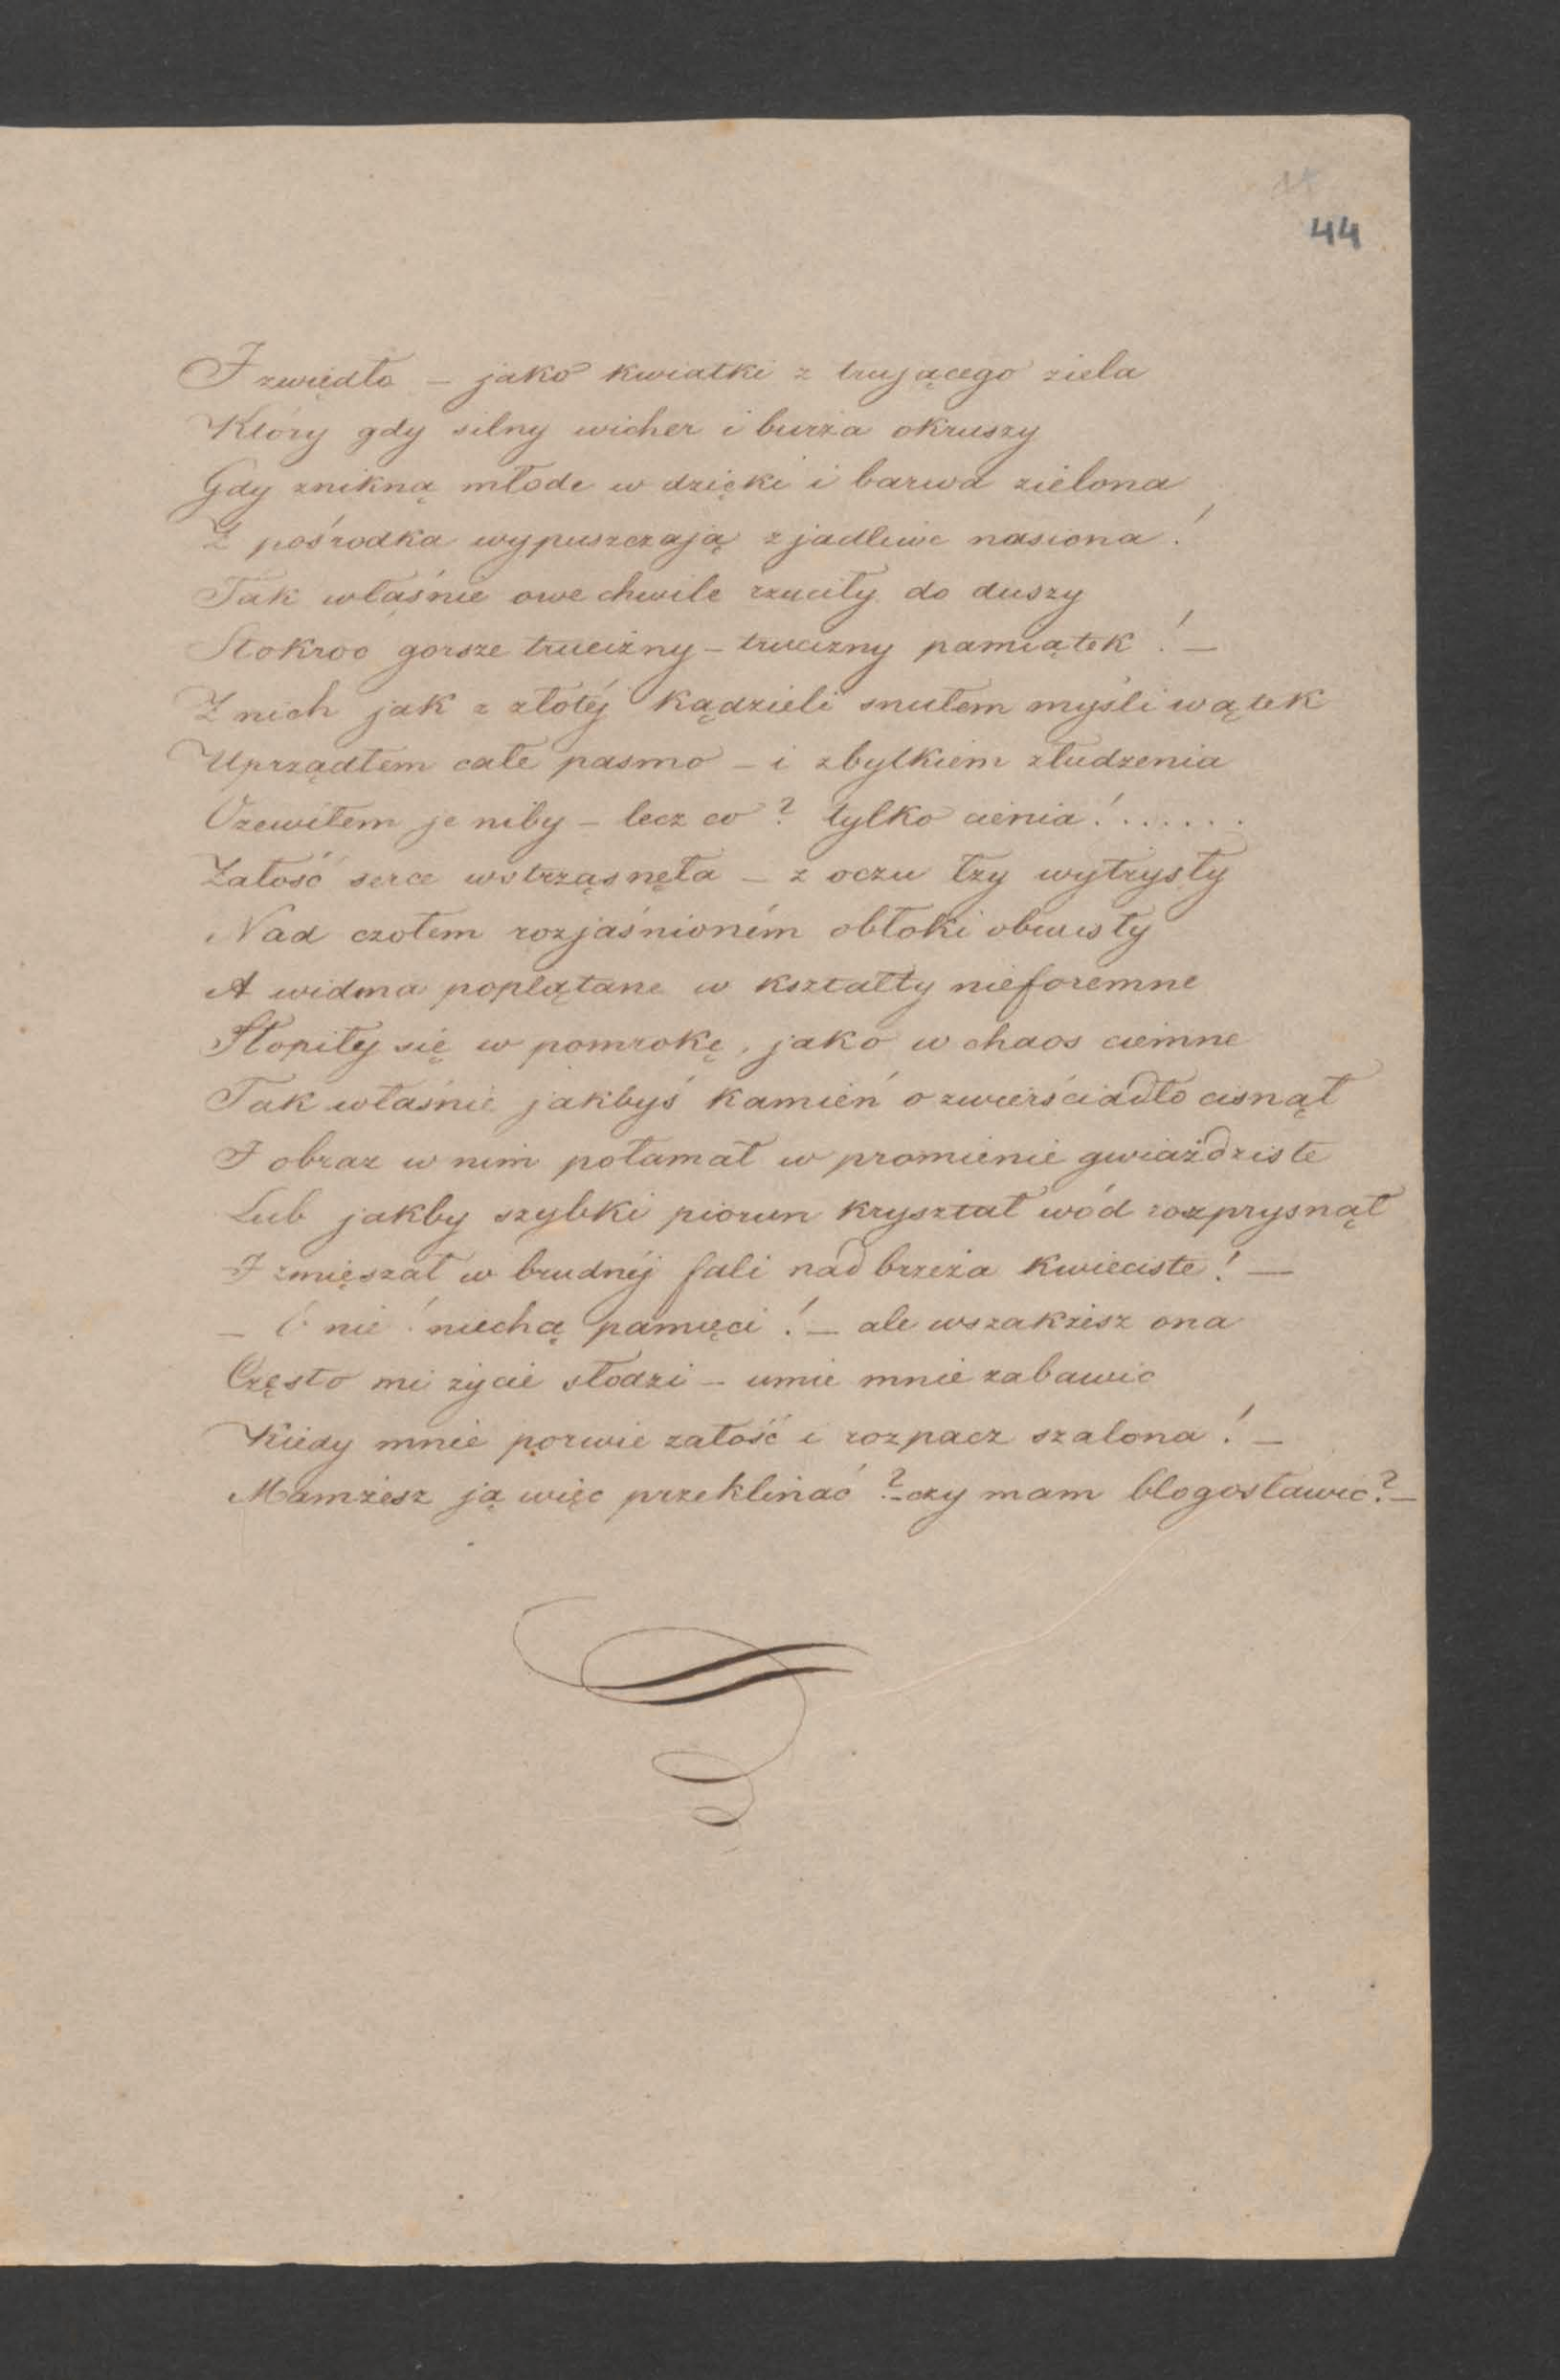 44
I zwiędło – jako kwiatki z trującego ziela
Który gdy silny wicher i burza okruszy
Gdy znikną młode wdzięki i barwa zielona
Z pośrodka wypuszczają zjadliwe nasiona!
Tak właśnie owe chwile rzuciły do duszy
Stokroć gorsze trucizny – trucizny pamiątek! –
Z nich jak z złotéj kądzieli snułem myśli wątek
Uprządłem całe pasmo – i zbytkiem złudzenia
Ożewiłem je niby – lecz co? tylko cienia!......
Żałość serce wstrząsnęła – z oczu łzy wytrysły
Nad czołem rozjaśnioném obłoki obwisły
A widma poplątane w kształty nieforemne
Stopiły się w pomrokę, jako w chaos ciemne
Tak właśnie jakbyś kamień o zwierściadło cisnął
I obraz w nim połamał w promienie gwiaździste
Lub jakby szybki piorun kryształ wód rozprysnął
I zmięszał w brudnéj fali nadbrzeża kwieciste! –
– O nie! niechcę pamięci! – ale wszakżesz ona
Często mi życie słodzi – umie mnie zabawić
Kiedy mnie porwie żałość i rozpacz szalona! –
Mamżesz ją więc przeklinać? – czy mam błogosławić? –